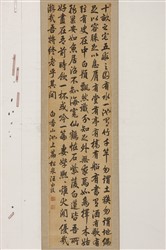 十畝之宅五畝之園有水一池有竹千竿勿謂土狹勿謂地偏
足以容膝足以息肩有堂有庭有橋有船有書有酒有歌有絃
有叟在中白鬚飄然識分知足外無求焉如鳥擇木姑
務巢安如龜居坎不知海寬靈鶴怪石紫菱白蓮皆吾所
好盡在吾前時飲一杯或吟一篇妻孥熙熙雞犬閒閒優哉
游哉吾將終老乎其間
白香山池上篇 松泉汪由敦